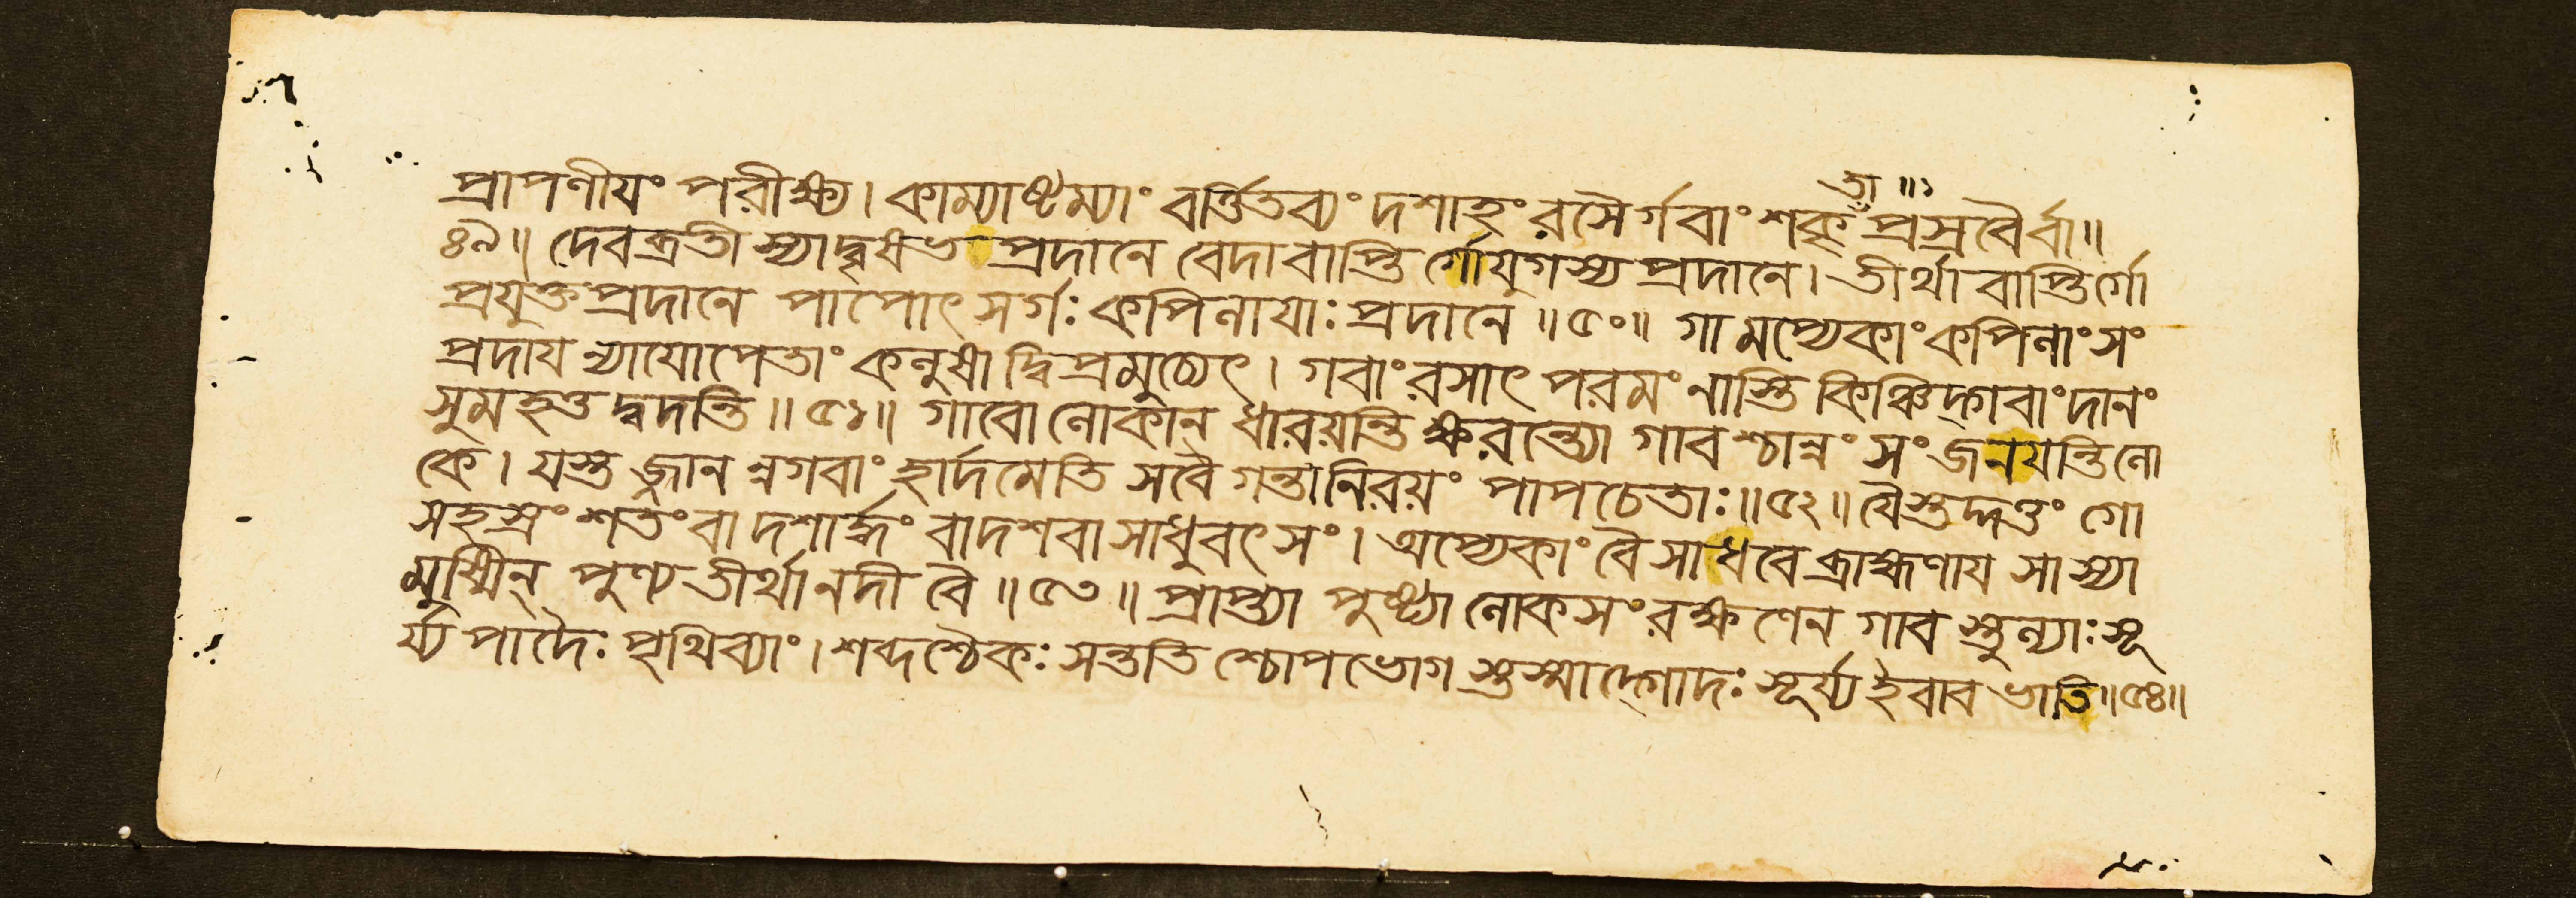 প্রাপণীযং পরীক্ষ্য। কাম্যাষ্টম্যাং বর্ত্তিতব্যং দশাহং রসৈর্গবাং শকৃৎপ্রস্রবৈর্বা॥
৪৯॥ দেবব্রতী স্যাদ্বৃষভপ্রদানে বেদাবাপ্তির্গোযুগস্য প্রদানে। তীর্থাবাপ্তির্গো
প্রযুক্তপ্রদানে পাপোৎসর্গঃ কপিনাযাঃ প্রদানে॥৫০॥ গামপ্যেকাং কপিনাং সং
প্রদায ন্যাযোপেতাং কনুষাদ্বিপ্রমুচ্যেৎ। গবাং রসাৎ পরমং নাস্তি কিঞ্চিদ্গবাং দানং
সুমহত্তদ্বদন্তি॥৫১॥ গাবো নোকান্ ধারয়ন্তি ক্ষরন্ত্যো গাবশ্চান্নং সংজনযন্তি নো
কে। যস্তজ্জানন্নগবাং হার্দমেতি সবৈ গন্তা নিরয়ং পাপচেতাঃ॥৫২॥ যৈস্তদ্দত্তং গো
সহস্রং শতং বা দশার্দ্ধং বা দশ বা সাধুবৎসং। অপ্যেকাং বৈ সাধবে ব্রাহ্মণায সাস্যা
মুষ্মিন্ পুণ্যতীর্থা নদী বৈ॥৫৩॥ প্রাপ্ত্যা পুষ্ট্যা নোকসংরক্ষণেন গাবস্তুন্যাঃ সূ
র্য্যপাদৈঃ পৃথিব্যাং। শব্দশ্চৈকঃ সন্ততিশ্চোপভোগস্তস্মাদ্গোদঃ সূর্য্য ইবাবভাতি॥৫৪॥